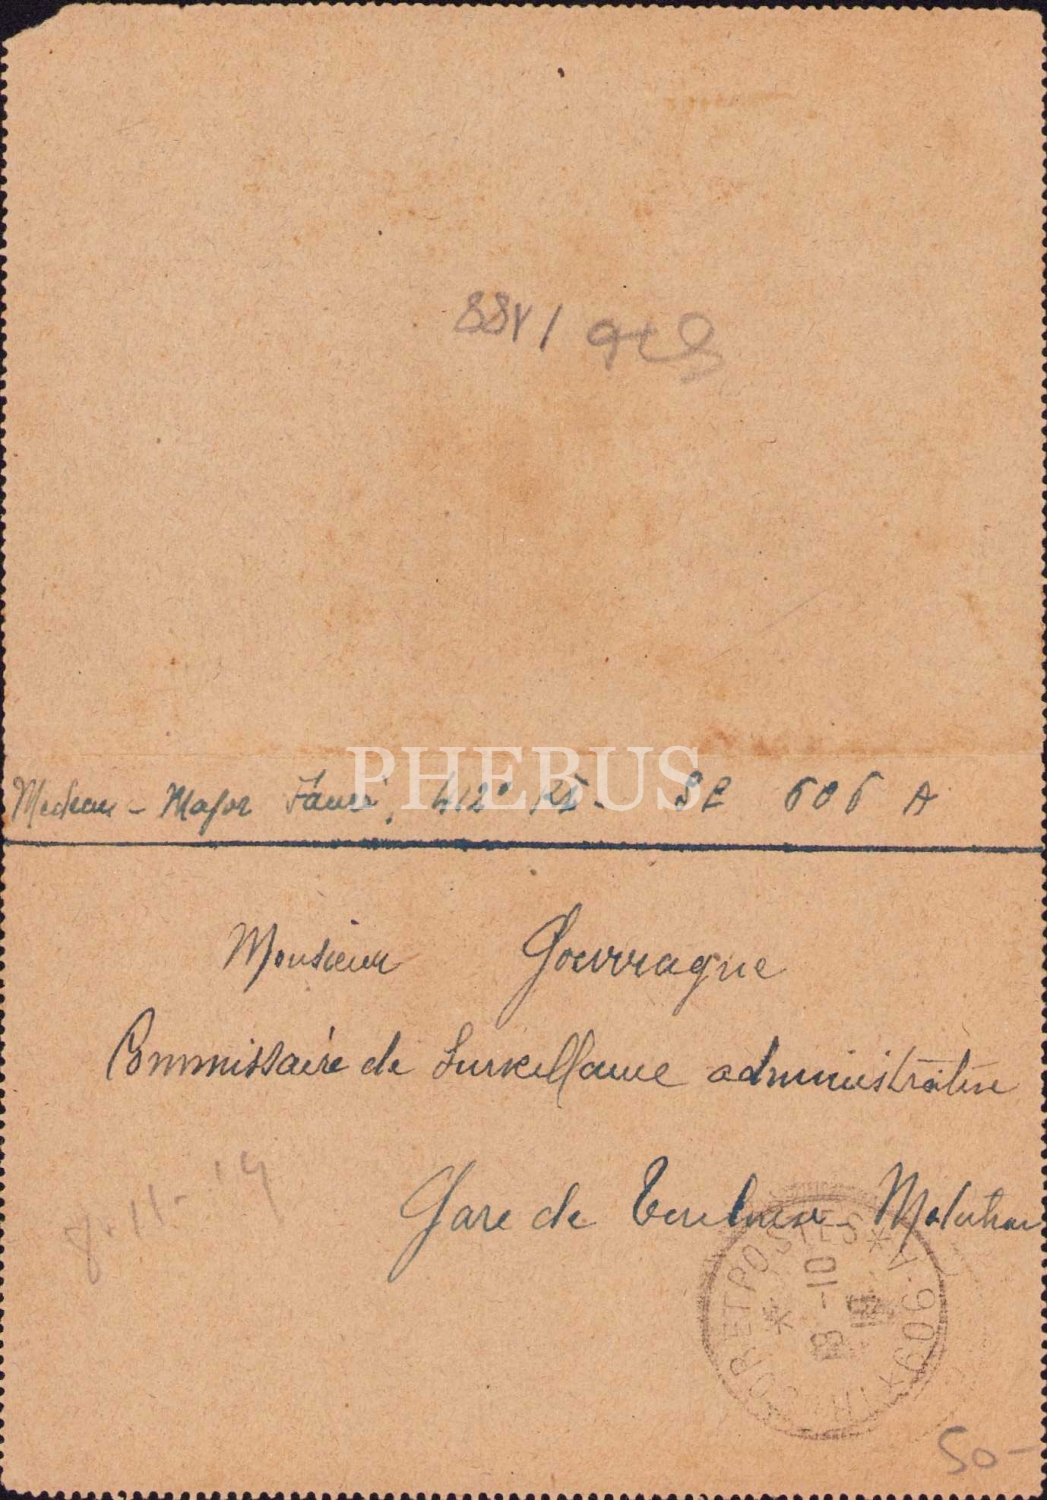 PHEBUS
Major 412e RI - SP 606 A
Monsieur Gouvragne
Commissaire de Surveillance administrative
Gare de Toulouse - Matabiau
8-11-19
TRESOR ET POSTES * 606 *
8 - 10
50 -